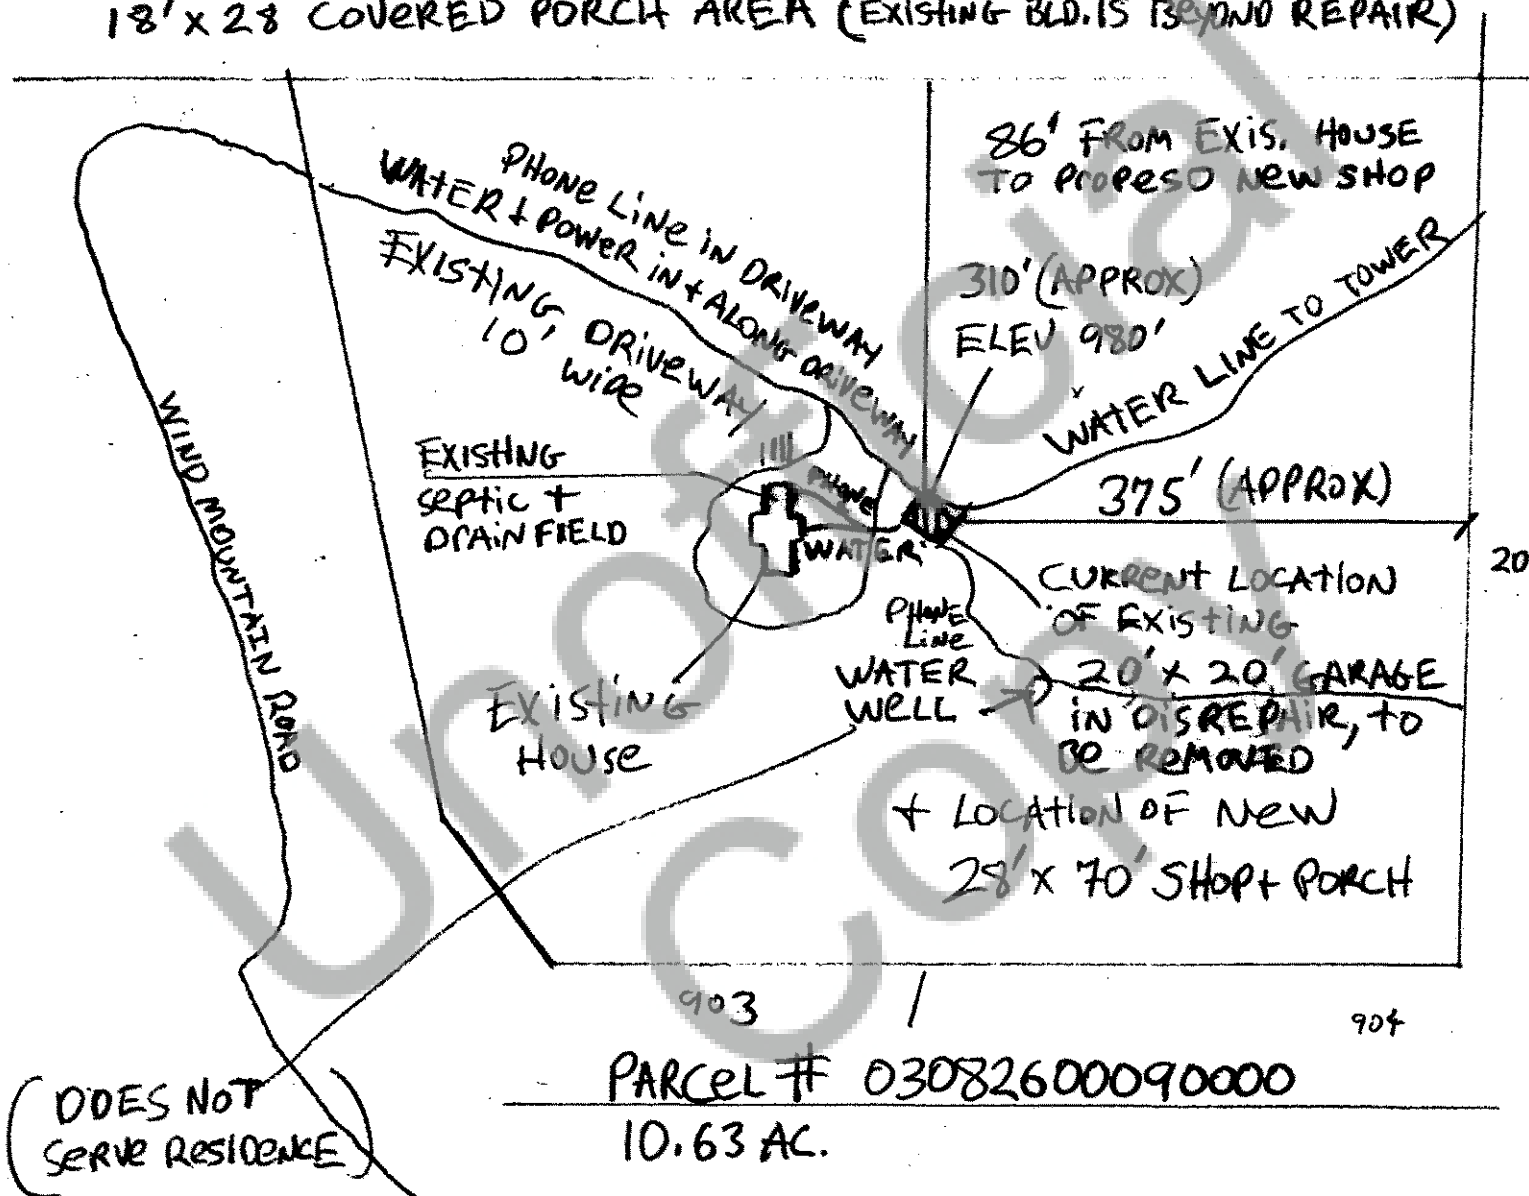 18' x 28 COVERED PORCH AREA (EXISTING BLD. IS BEYOND REPAIR)
86' FROM EXIS. HOUSE
TO PROPESD NEW SHOP
PHONE LINE IN DRIVEWAY
WATER + POWER IN + ALONG DRIVEWAY
EXISTING, DRIVEWAY
10' WIDE
310' (APPROX)
ELEV 980'
WATER LINE TO TOWER
WIND MOUNTAIN ROAD
EXISTING
SEPTIC +
DRAIN FIELD
PHONE
WATER
375' (APPROX)
20
CURRENT LOCATION
OF EXISTING
20' x 20' GARAGE
IN DISREPAIR, TO
BE REMOVED
+ LOCATION OF NEW
28' x 70' SHOP + PORCH
PHONE
LINE
WATER
WELL
EXISTING
HOUSE
903
904
PARCEL # 03082600090000
10.63 AC.
(DOES NOT
SERVE RESIDENCE)
Unofficial
Copy